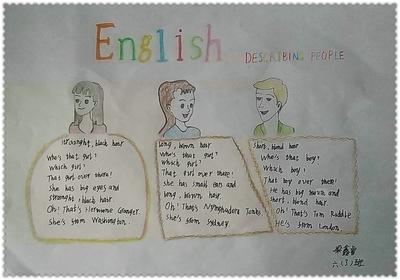 English
DESCRIBING PEOPLE
straight, black hair
Who's that girl?
Which girl?
That girl over there!
She has big eyes and
straight, black hair.
Oh! That's Hermione Granger.
She's from Washington.
long, brown hair
Who's that girl?
Which girl?
That girl over there!
She has small ears and
long, brown hair.
Oh! That's Nymphadora Tonks
She's from Sydney.
short, blond hair
Who's that boy?
Which boy?
That boy over there!
He has big mouth and
short, blond hair.
Oh! That's Tom Riddle
He's from London
六(3)班